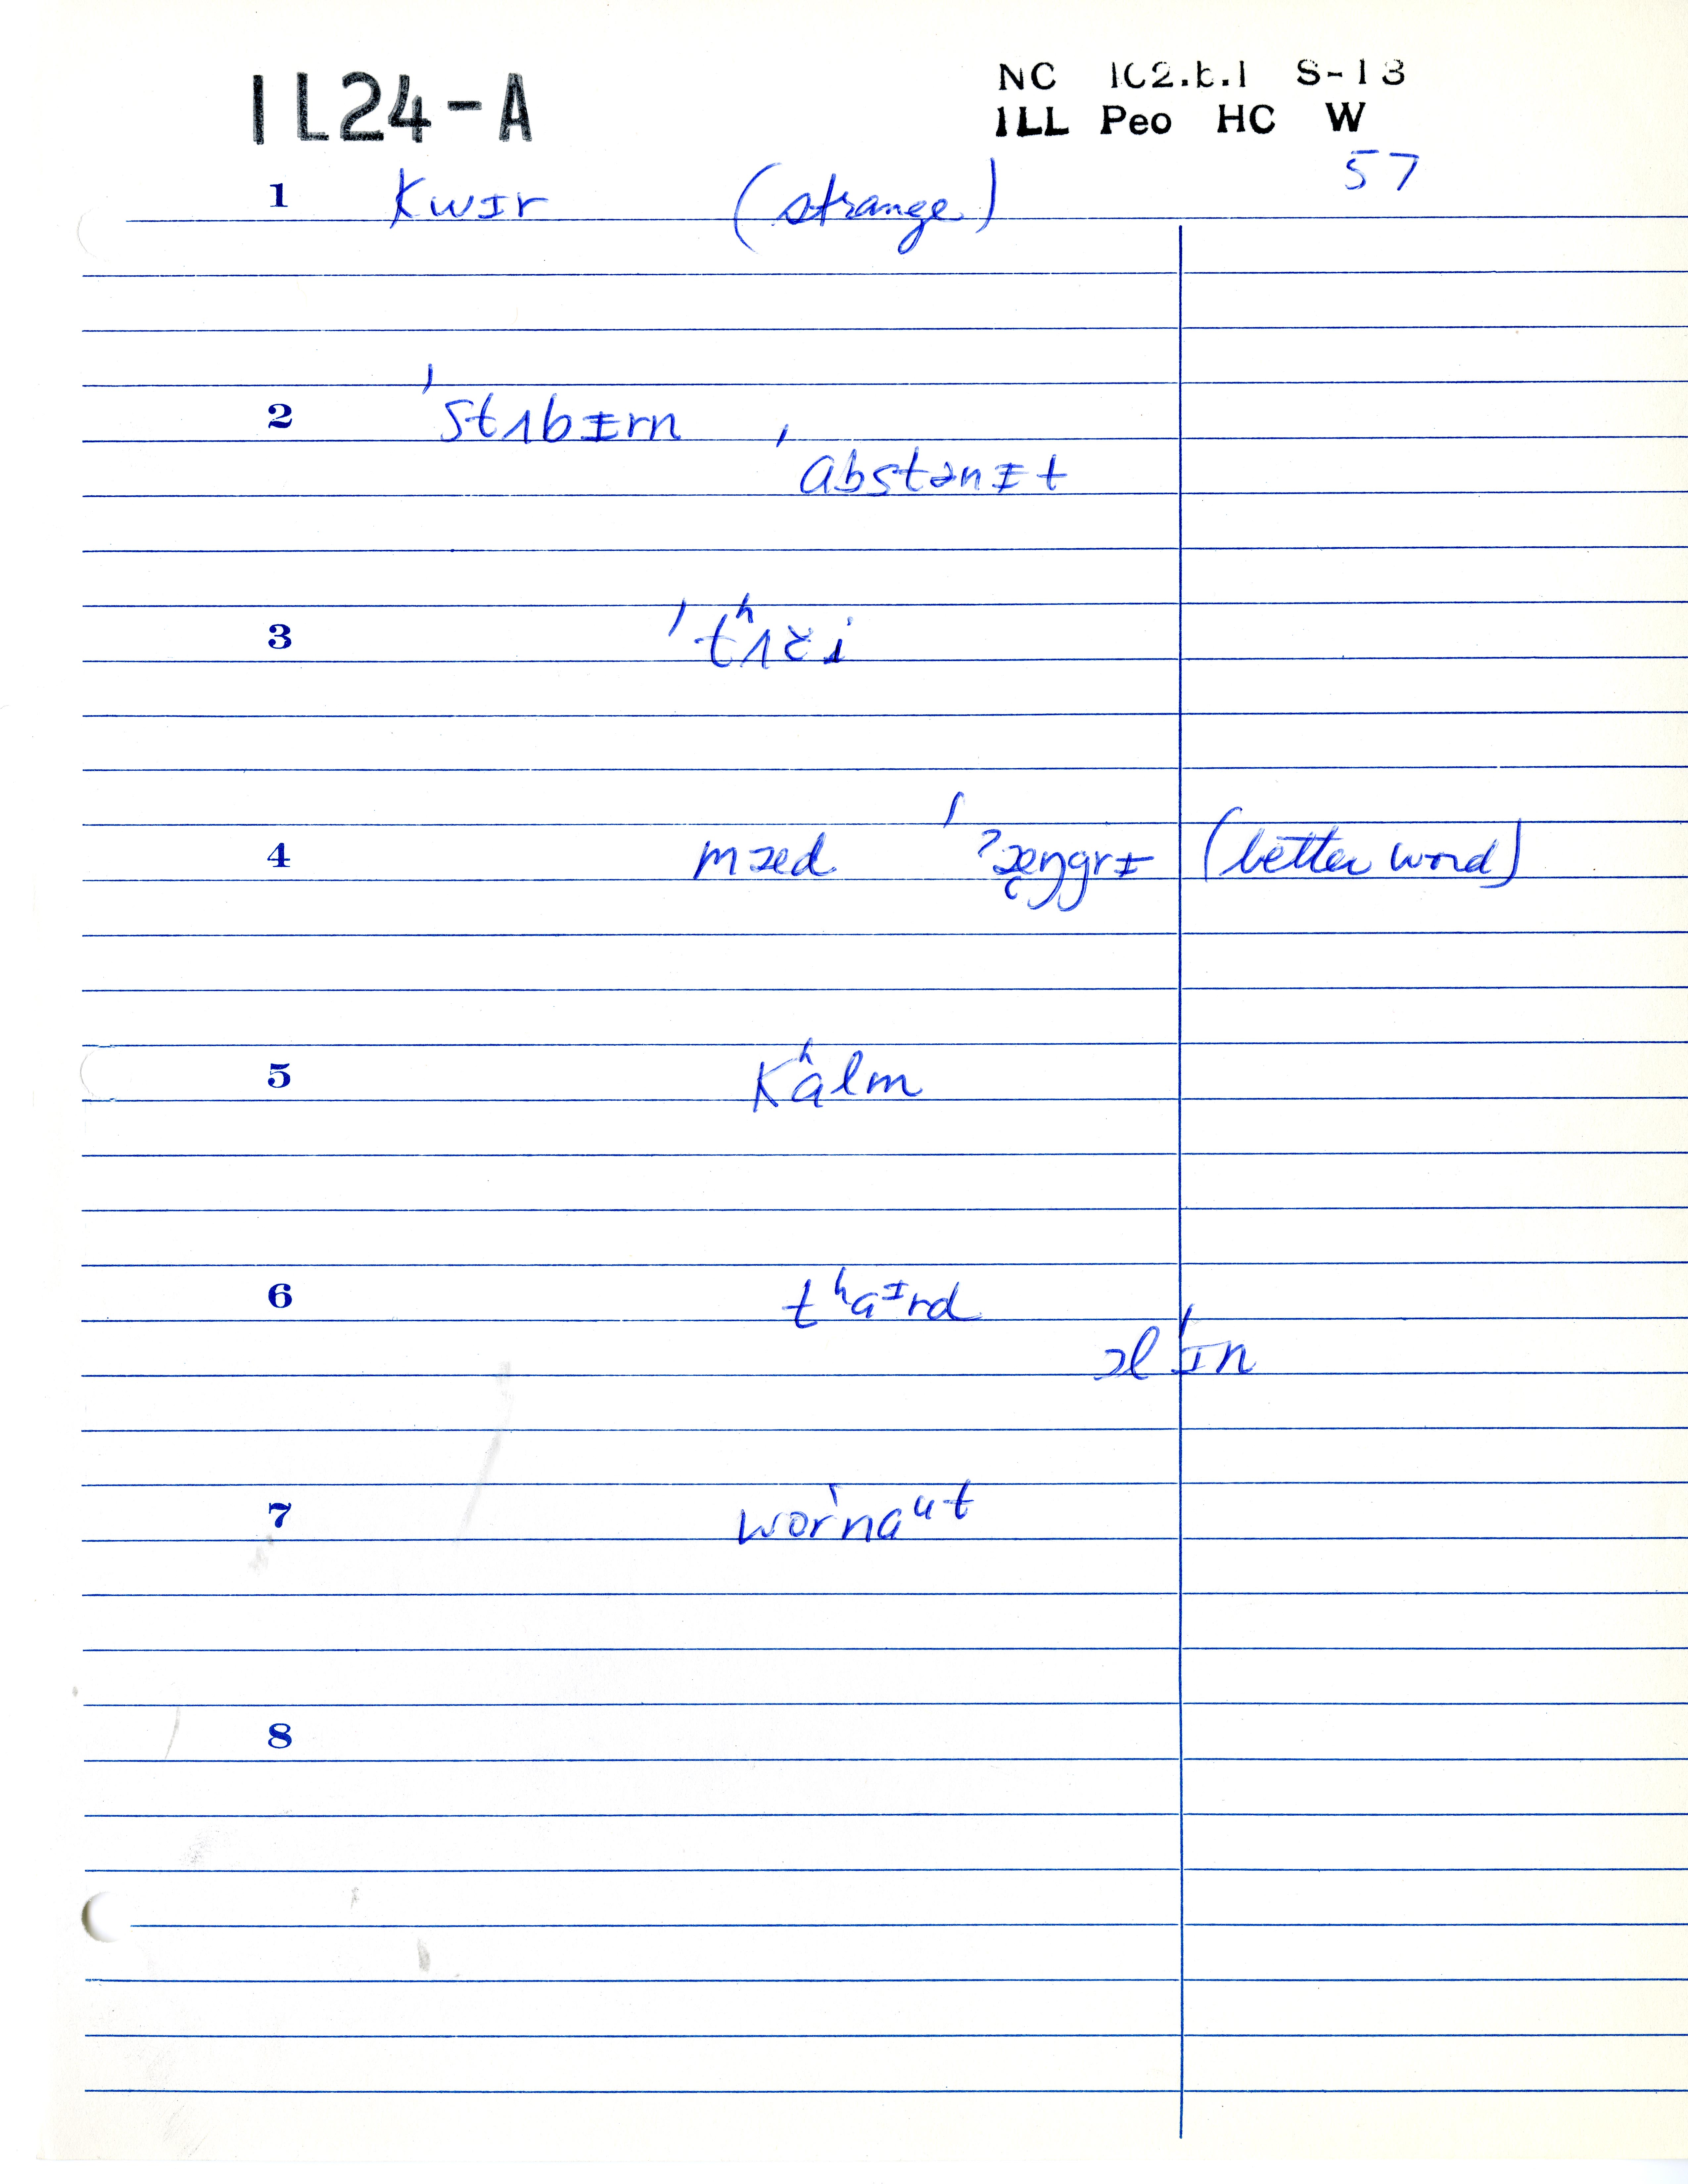 IL24-A
NC 1C2.b.1 S-13
ILL Peo HC W
57
1 kwɪr (strange)
2 ˈstʌbɪ̵rn
ˈabstənɪ̵t
3 ˈtʰʌči
4 mæd ˈʔæ̨ŋgrɪ̵ (better word)
5 kʰalm
6 tʰaᶦrd
əlˈɪn
7 worˈnaᵘt
8